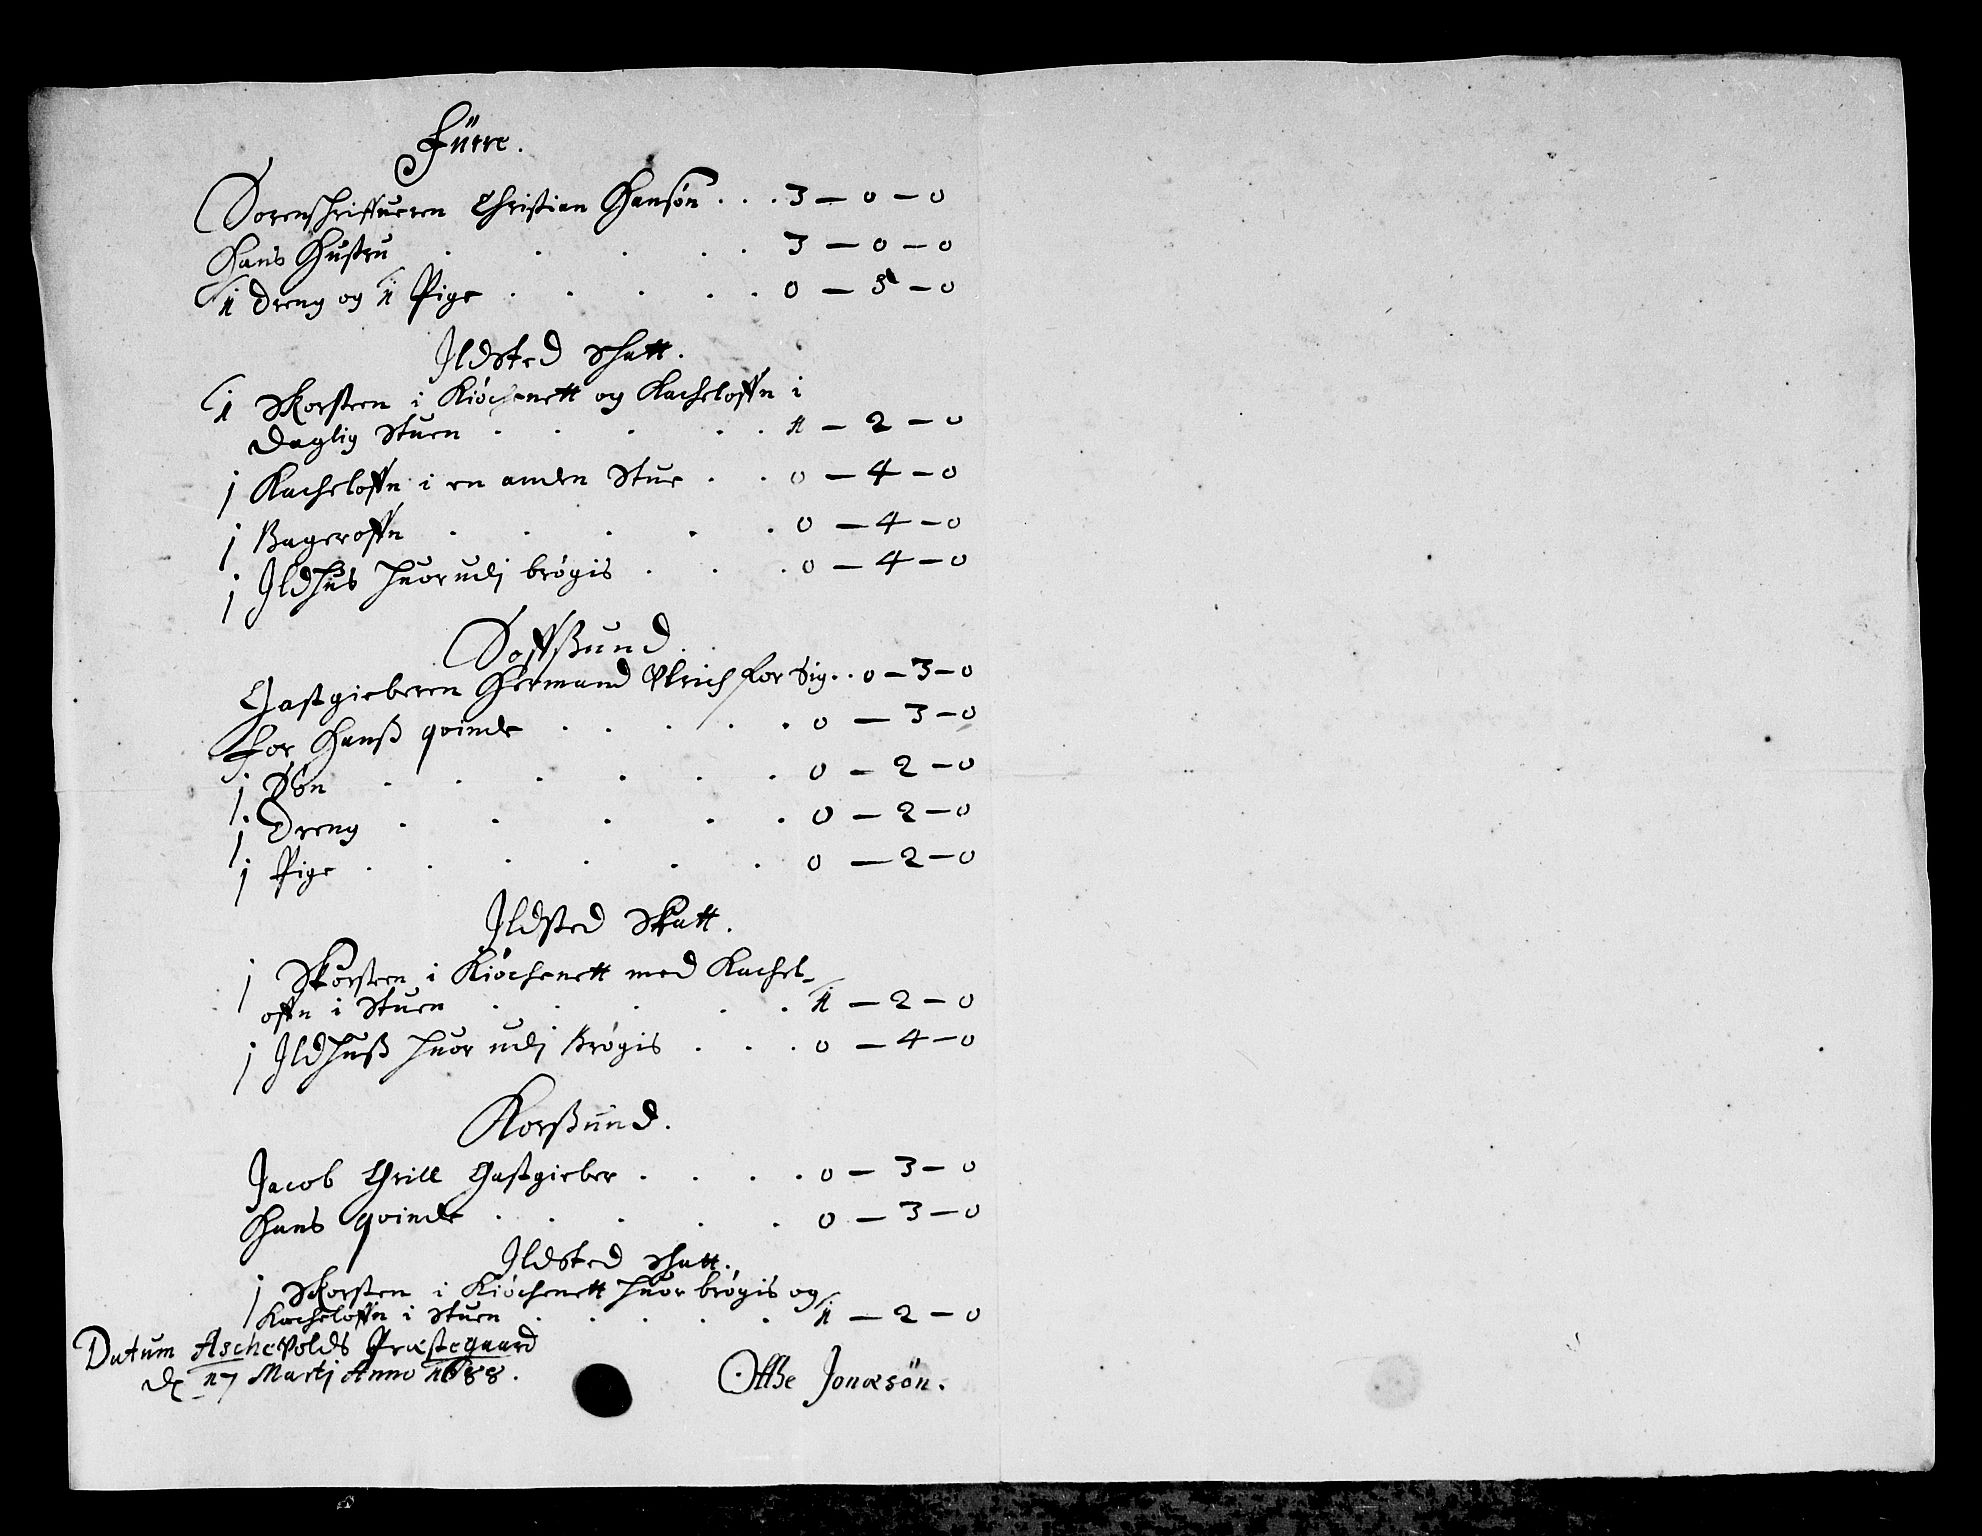 Fürre.
Sorenschriffueren Christian Hansøn . . . 3 – 0 – 0
Hans Hustru . . . . . 3 – 0 – 0
1 Dreng og 1 Pige . . . . . 0 – 5 – 0
Ildsted schatt.
1 Skorsteen i Kiøchenett og Kacheloffn i
Daglig Stuen . . . . . 1 – 2 – 0
1 Kacheloffn i en anden Stue . . 0 – 4 – 0
1 Bageroffn . . . . . 0 – 4 – 0
1 Ildhus huorudj brøgis . . . 0 – 4 – 0
Soffßund.
Gastgieberen Hermand Ulrich for Sig . . 0 – 3 – 0
for Hanß qvinde . . . . 0 – 3 – 0
1 Søn . . . . . . 0 – 2 – 0
1 Dreng . . . . . 0 – 2 – 0
1 Pige . . . . . . 0 – 2 – 0
Ildsted Skatt.
1 Skorsteen i Kiøchenett med Kachel-
offn i Stuen . . . . . 1 – 2 – 0
1 Ildhuß huor udj Brøgis . . . 0 – 4 – 0
Korßund.
Jacob Grill Gastgieber . . . . 0 – 3 – 0
Hans qvinde . . . . . 0 – 3 – 0
Ildsted schatt.
1 Skorsten i Kiøchenett huor brøgis og
Kacheloffn i Stuen . . . . . 1 – 2 – 0
Datum Aschevolds Præstegaard
d. 17 Martj Anno 1688.
Otthe Jonæsön.